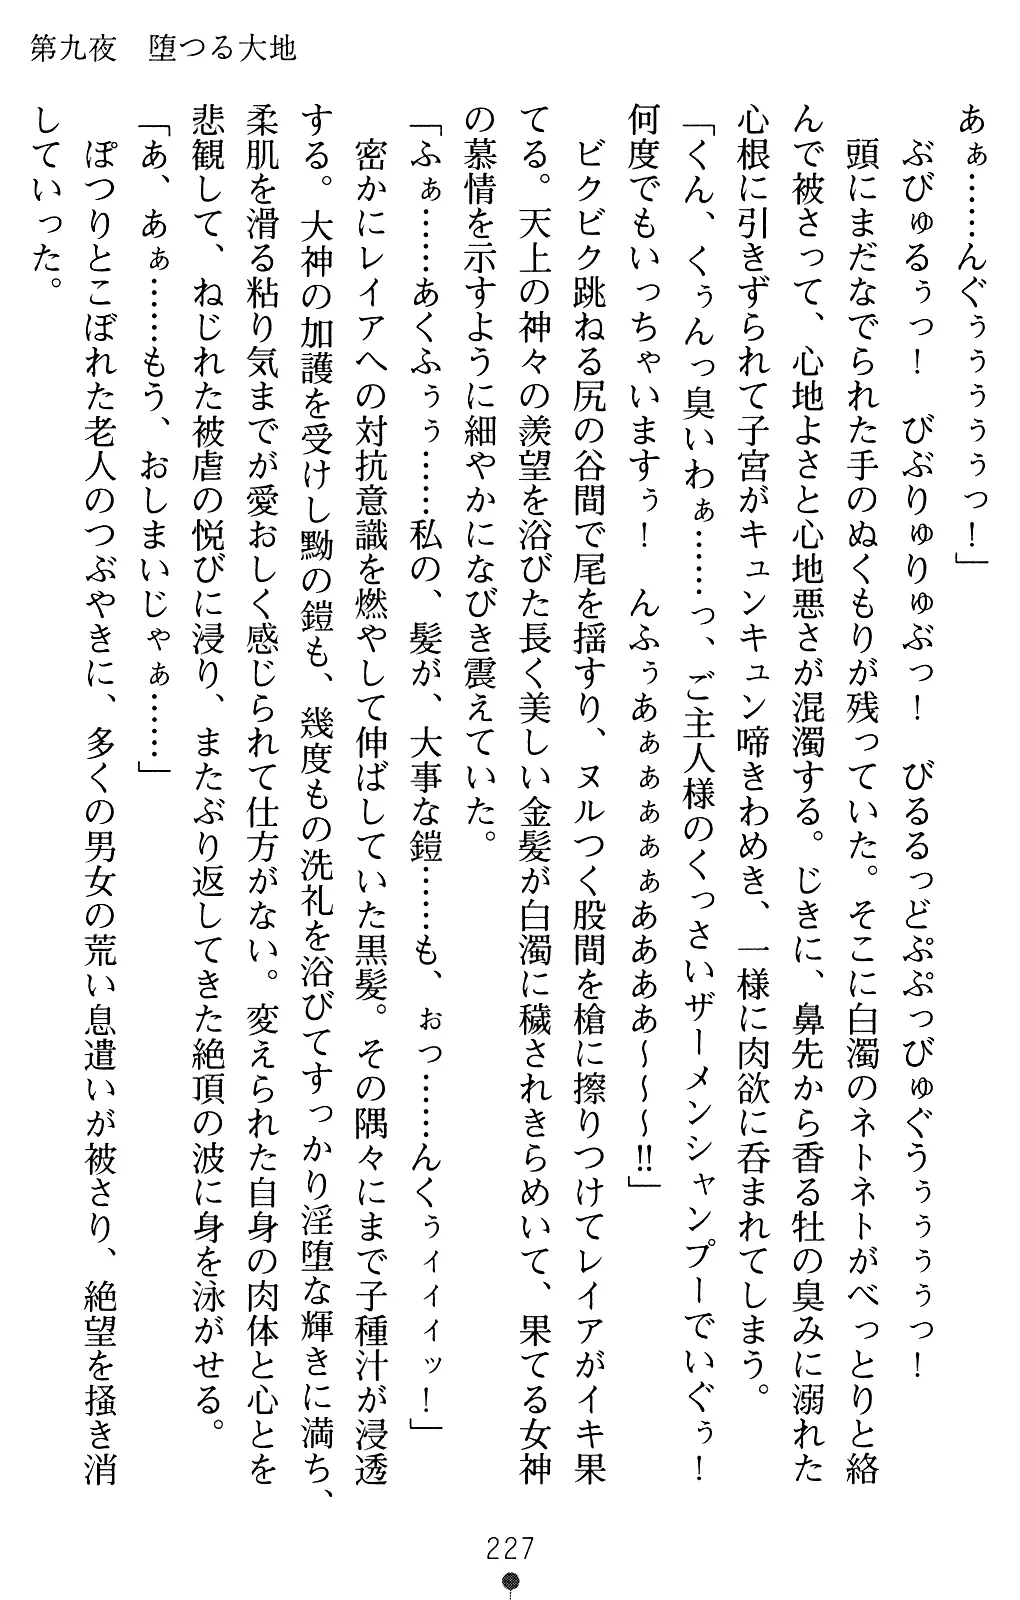 第九夜　堕つる大地
あぁ……んぐぅぅぅぅぅっ！」
　ぶびゅるぅっ！　びぶりゅりゅぶっ！　びるるっどぷぷっびゅぐうぅぅぅぅっ！
　頭にまだなでられた手のぬくもりが残っていた。そこに白濁のネトネトがべっとりと絡
んで被さって、心地よさと心地悪さが混濁する。じきに、鼻先から香る牡の臭みに溺れた
心根に引きずられて子宮がキュンキュン啼きわめき、一様に肉欲に呑まれてしまう。
「くん、くぅんっ臭いわぁ……っ、ご主人様のくっさいザーメンシャンプーでいぐぅ！
何度でもいっちゃいますぅ！　んふぅあぁぁぁぁぁああああ～～～‼」
　ビクビク跳ねる尻の谷間で尾を揺すり、ヌルつく股間を槍に擦りつけてレイアがイキ果
てる。天上の神々の羨望を浴びた長く美しい金髪が白濁に穢されきらめいて、果てる女神
の慕情を示すように細やかになびき震えていた。
「ふぁ……あくふぅぅ……私の、髪が、大事な鎧……も、ぉっ……んくぅィィィッ！」
　密かにレイアへの対抗意識を燃やして伸ばしていた黒髪。その隅々にまで子種汁が浸透
する。大神の加護を受けし黝の鎧も、幾度もの洗礼を浴びてすっかり淫堕な輝きに満ち、
柔肌を滑る粘り気までが愛おしく感じられて仕方がない。変えられた自身の肉体と心とを
悲観して、ねじれた被虐の悦びに浸り、またぶり返してきた絶頂の波に身を泳がせる。
「あ、あぁ……もう、おしまいじゃぁ……」
　ぽつりとこぼれた老人のつぶやきに、多くの男女の荒い息遣いが被さり、絶望を掻き消
していった。
227